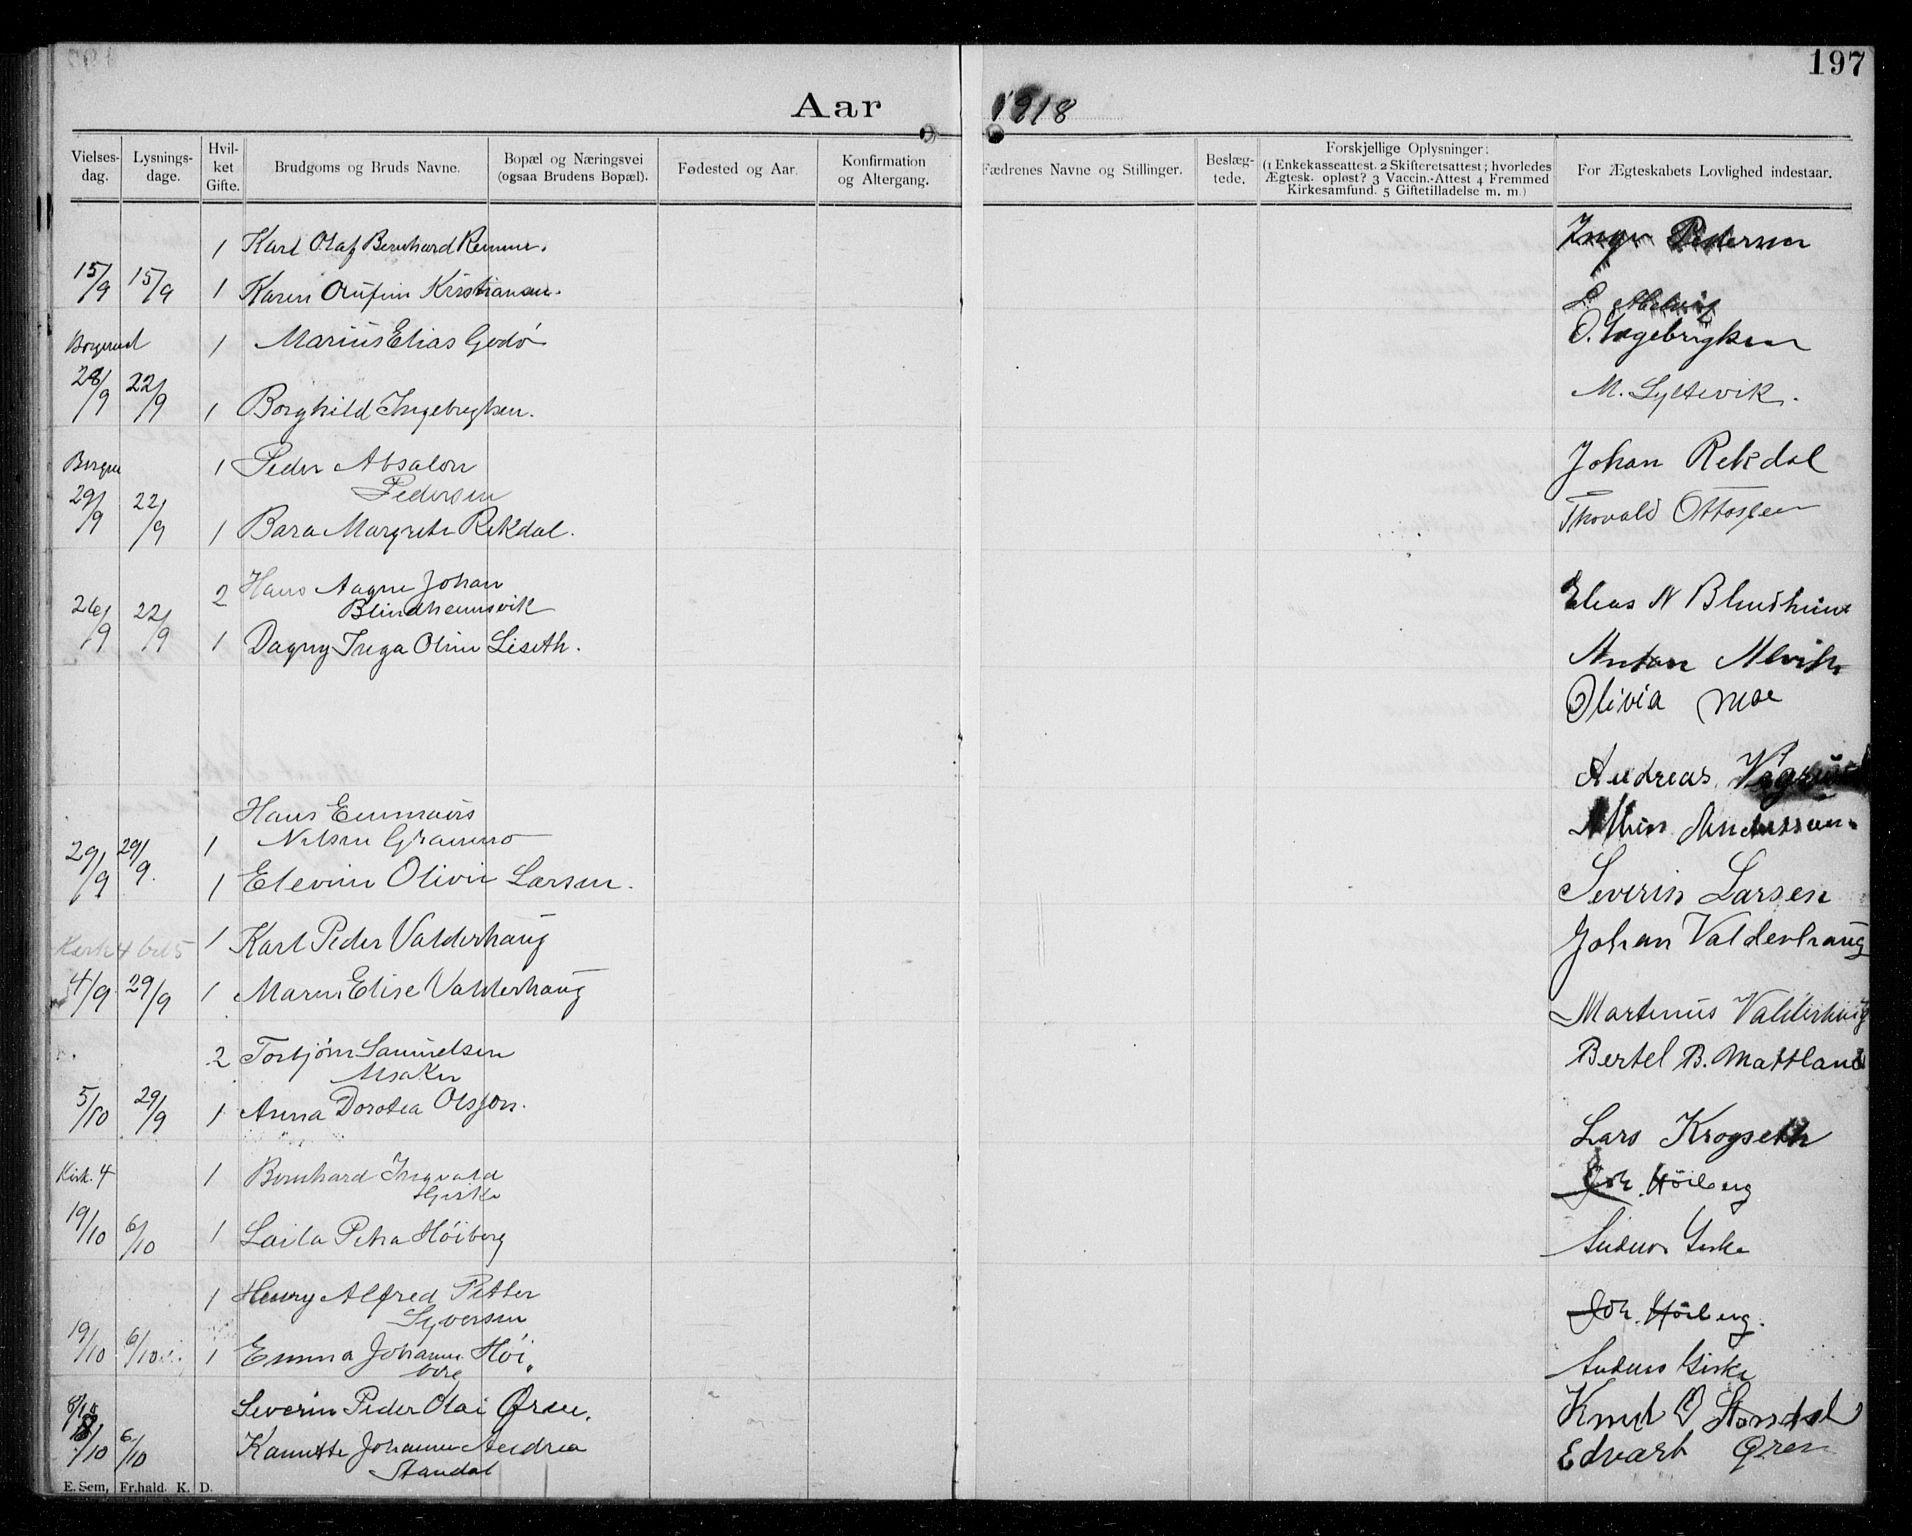 197
Aar 1918
Vielses-dag. Lysnings-dage. Hvil-ket Gifte. Brudgoms og Bruds Navne. Bopæl og Næringsvei (ogsaa Brudens Bopæl). Fødested og Aar. Konfirmation og Altergang. Fædrenes Navne og Stillinger. Beslæg-tede. Forskjellige Oplysninger: (1 Enkekasseattest. 2 Skifteretsattest; hvorledes Ægtesk. opløst? 3 Vaccin.-Attest 4 Fremmed Kirkesamfund. 5 Giftetilladelse m. m.) For Ægteskabets Lovlighed indestaar.
1 Karl Olaf Bernhard Pedersen
15/9 15/9 1 Karen Kristiansen.
1 Marius Elias Godø O. Ingebrigtsen
28/9 22/9 1 Borghild Ingebrigtsen. M. Lyttevik.
Bergen 1 Peder Absalon Johan Rekdal
Pedersen
29/9 22/9 1 Bara Margrete Rekdal. Thovald Ottossen
2 Hans Aagne Johan
Blindheimsvik Elias N Blindheim
26/9 22/9 1 Dagny Inga Oline Liseth.
Anton
Olivia Moe
Andreas
Hans Emmaus
1 Nilsen Gramno
29/9 29/9. 1 Elevine Olivie Larsen. Severin Larsen
1 Karl Peder Valderhaug Johan Valderhaug
4/9 29/9 1 Maren Elise Valderhaug
Martinus Valderhaug
2 Torbjørn Samuelsen Bertel B. Mattland
Msaker
5/10 29/9 1 Anna Dorotea
Lars Krogseth
Kirk. 4 1 Bernhard Ingvald Joh. Höiberg
Giske
19/10 6/10 1 Laila Petra Höiberg Anders Giske
1 Henry Alfred Petter
Syversen Joh. Höiberg.
19/10 6/10 1 Emma Johanne Höi
berg Anders Giske
8/10 Severin Peder Olai Øren. Knut O Standal
8/10 6/10 Kanutte Johanne Andrea Edvart Øren
Standal
E. Sem, Fr.hald. K. D.